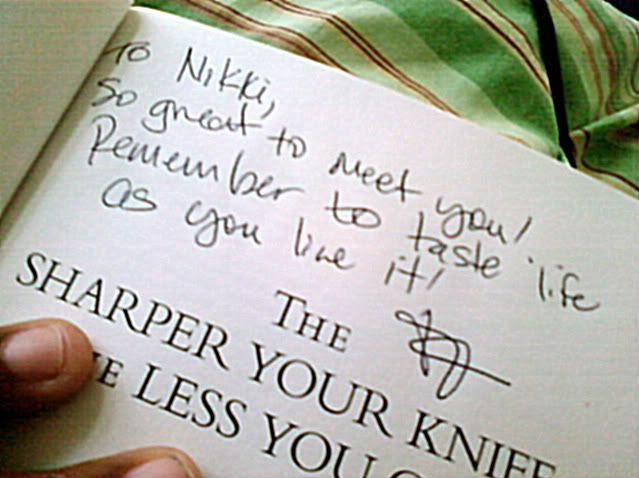 To Nikki,
So great to meet you!
Remember to taste life
as you live it!
THE
SHARPER YOUR KNIFE
THE LESS YOU